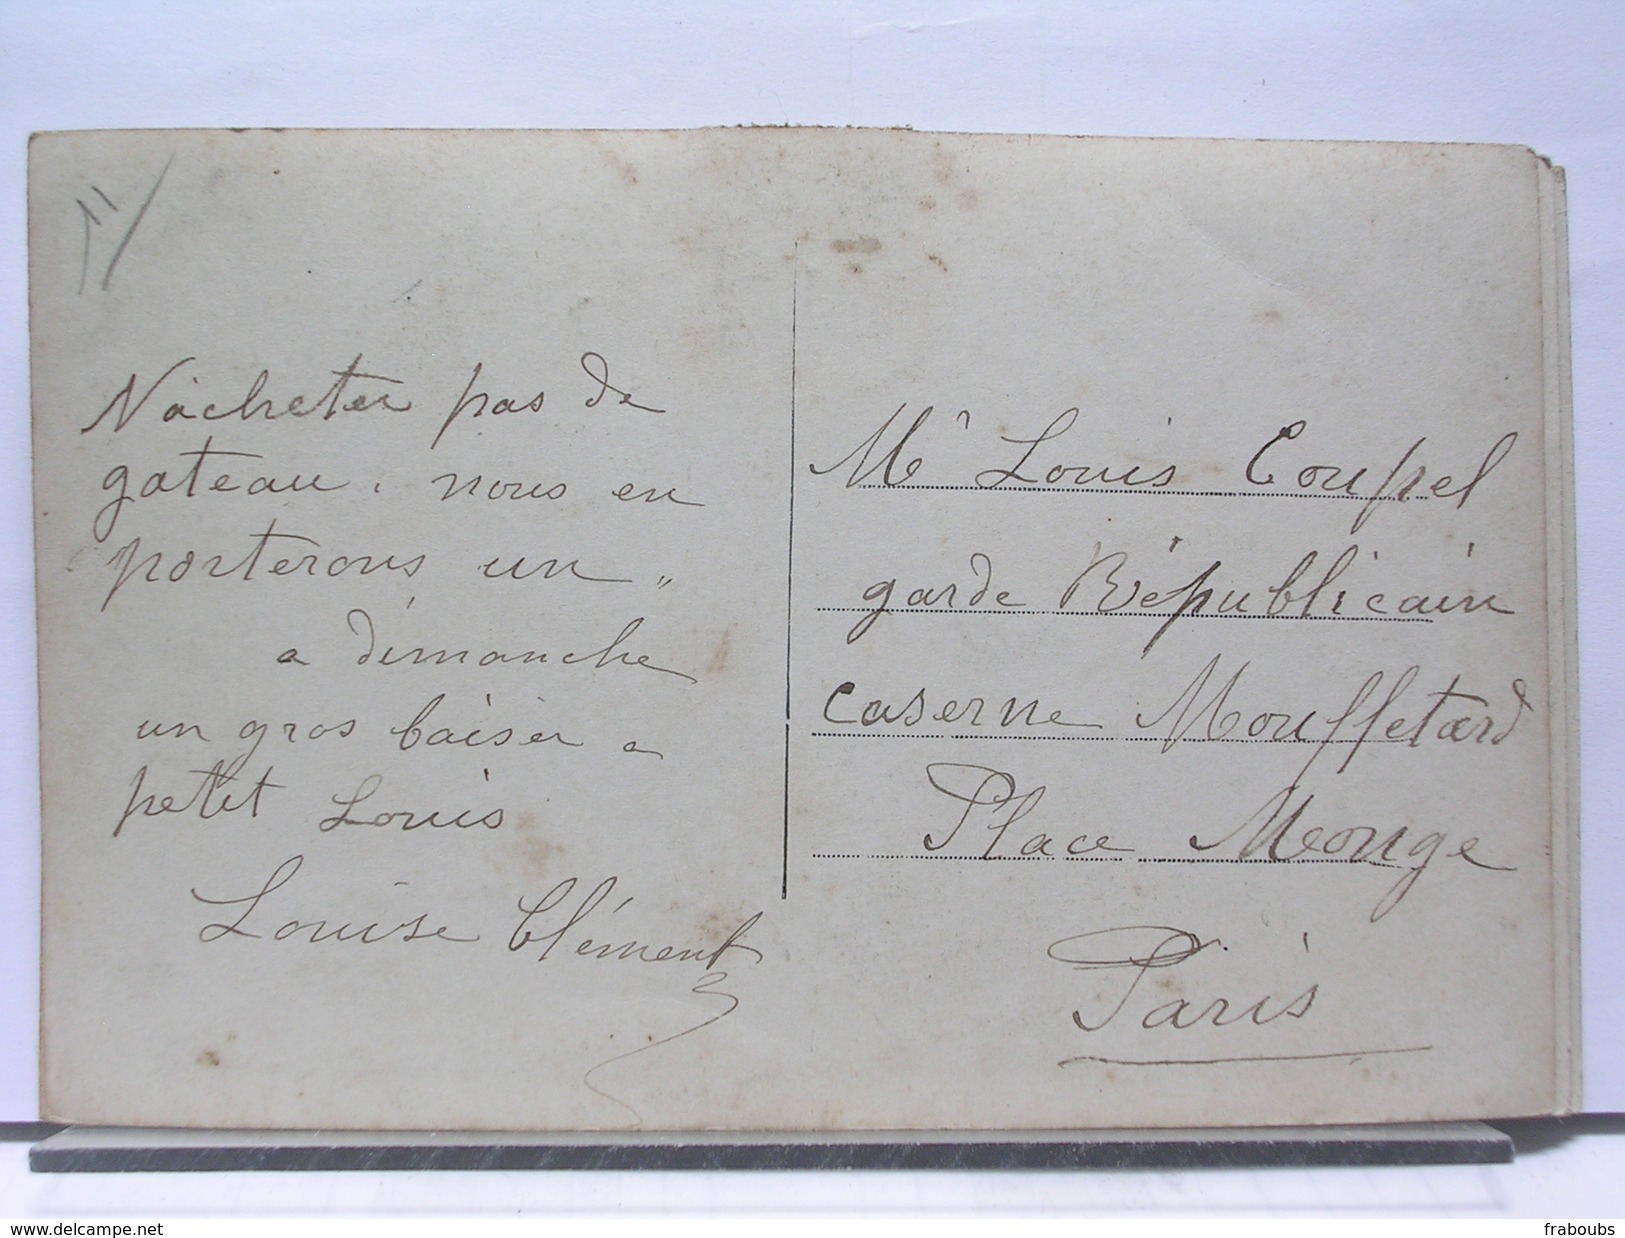 11
N'acheter pas de
gateau. nous en
porterons un "
a dimanche
un gros baiser a
petit Louis
Louise Clément
Mr Louis Coupel
garde Républicain
caserne Mouffetard
Place Monge
Paris
www.delcampe.net
fraboubs